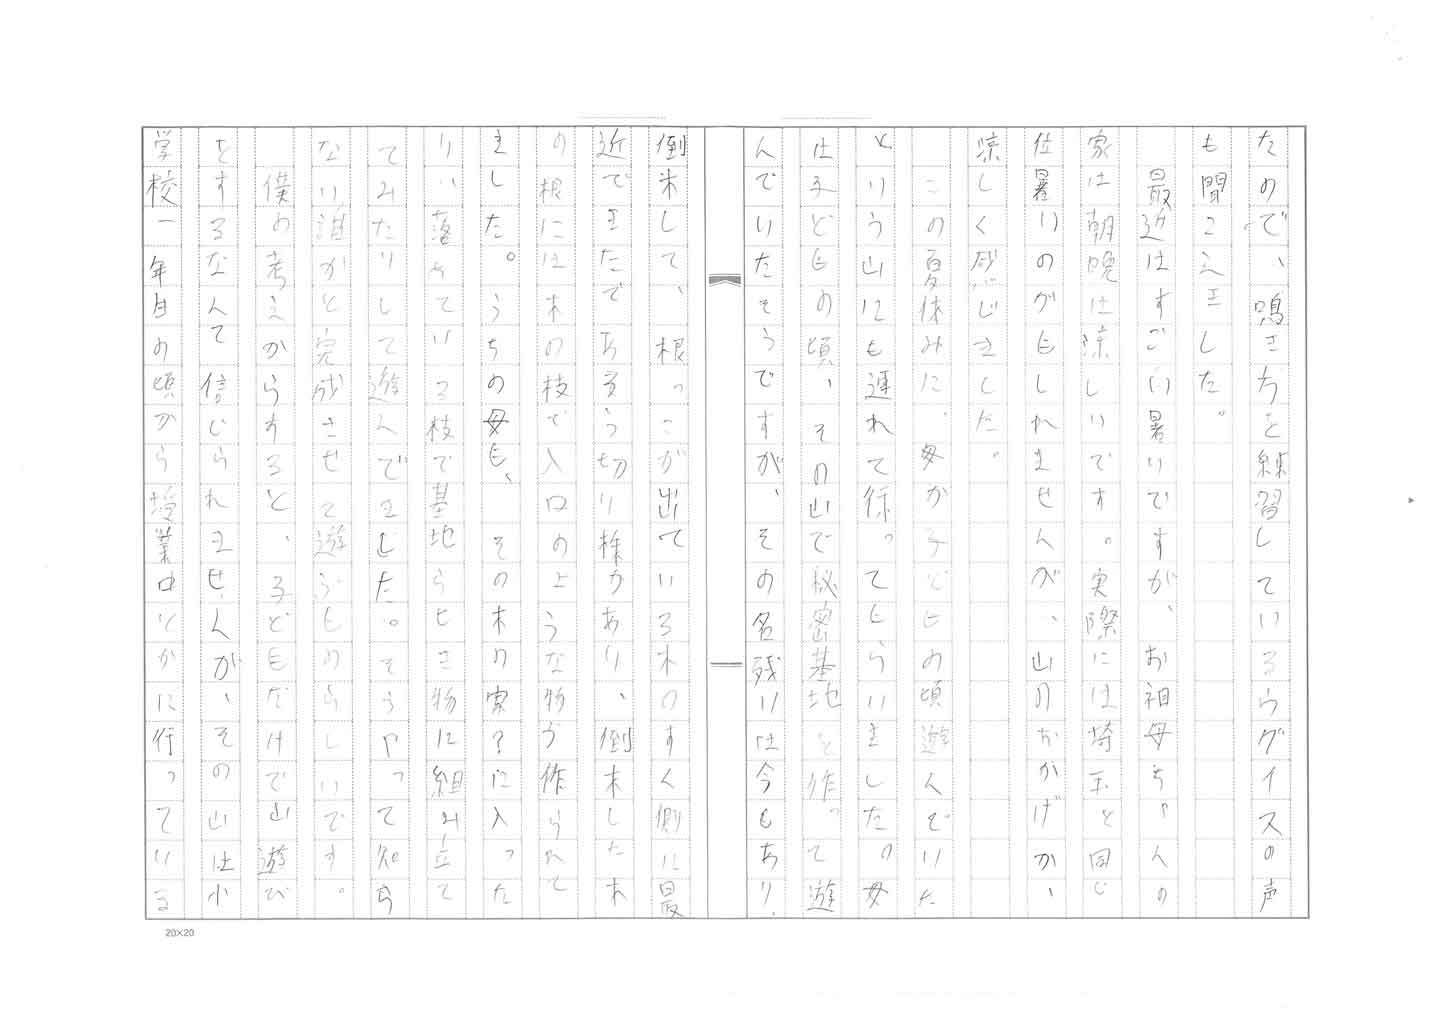 たので、鳴き方を練習しているらグイスの声
も聞こえました。
最近はすごい暑いですが、お祖母ちゃんの
家は朝晩は涼しいです。実際には埼玉と同じ
位暑いのかもしれませんが、山のおかげか、
涼しく感じました。
この夏休みに、母が子どもの頃遊んでいた
という山にも連れて行ってもらいました。母
は子どもの頃、その山で秘密基地を作って遊
んでいたそうですが、その名残りは今もあり、
倒木して、根っこが出ている木のすぐ側に最
近できたであろう切り株があり、倒木した木
の根には木の枝で入口のような物が作られて
ました。うちの母も、その木の家？に入った
り、落ちている枝で基地らしき物に組み立て
てみたりして遊んできました。そうやって知ら
ない誰かと完成させて遊ぶものらしいです。
僕の考えからすると、子どもだけで山遊び
をするなんて信じられませんが、その山は小
学校一年目の頃から授業中とかに行っている
20×20